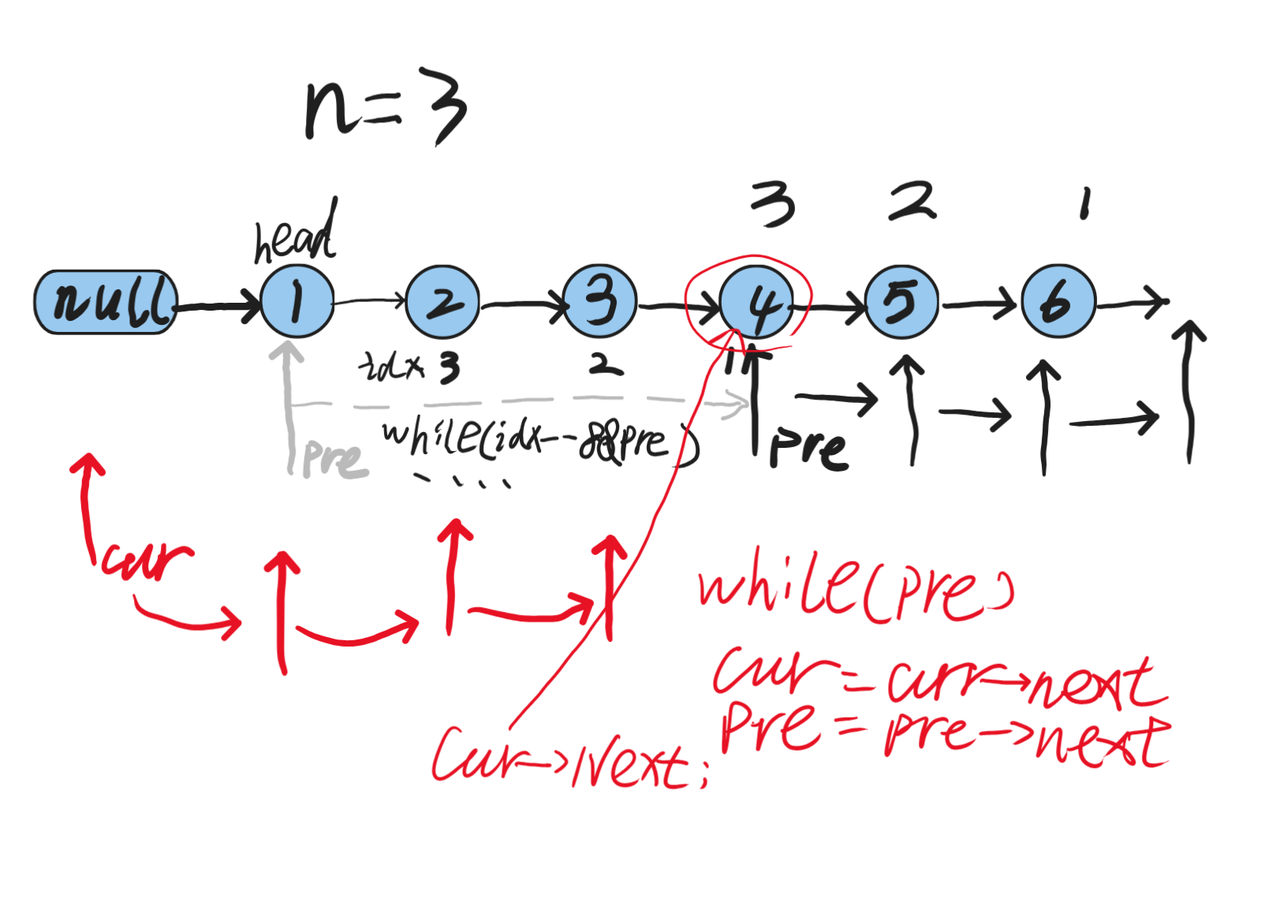 n=3
3 2 1
head
null 1 2 3 4 5 6
idx 3 2 1
while(idx--&&pre)
....
pre
pre
cur
while(pre)
cur=curr→next
pre=pre→next
Cur→Next;